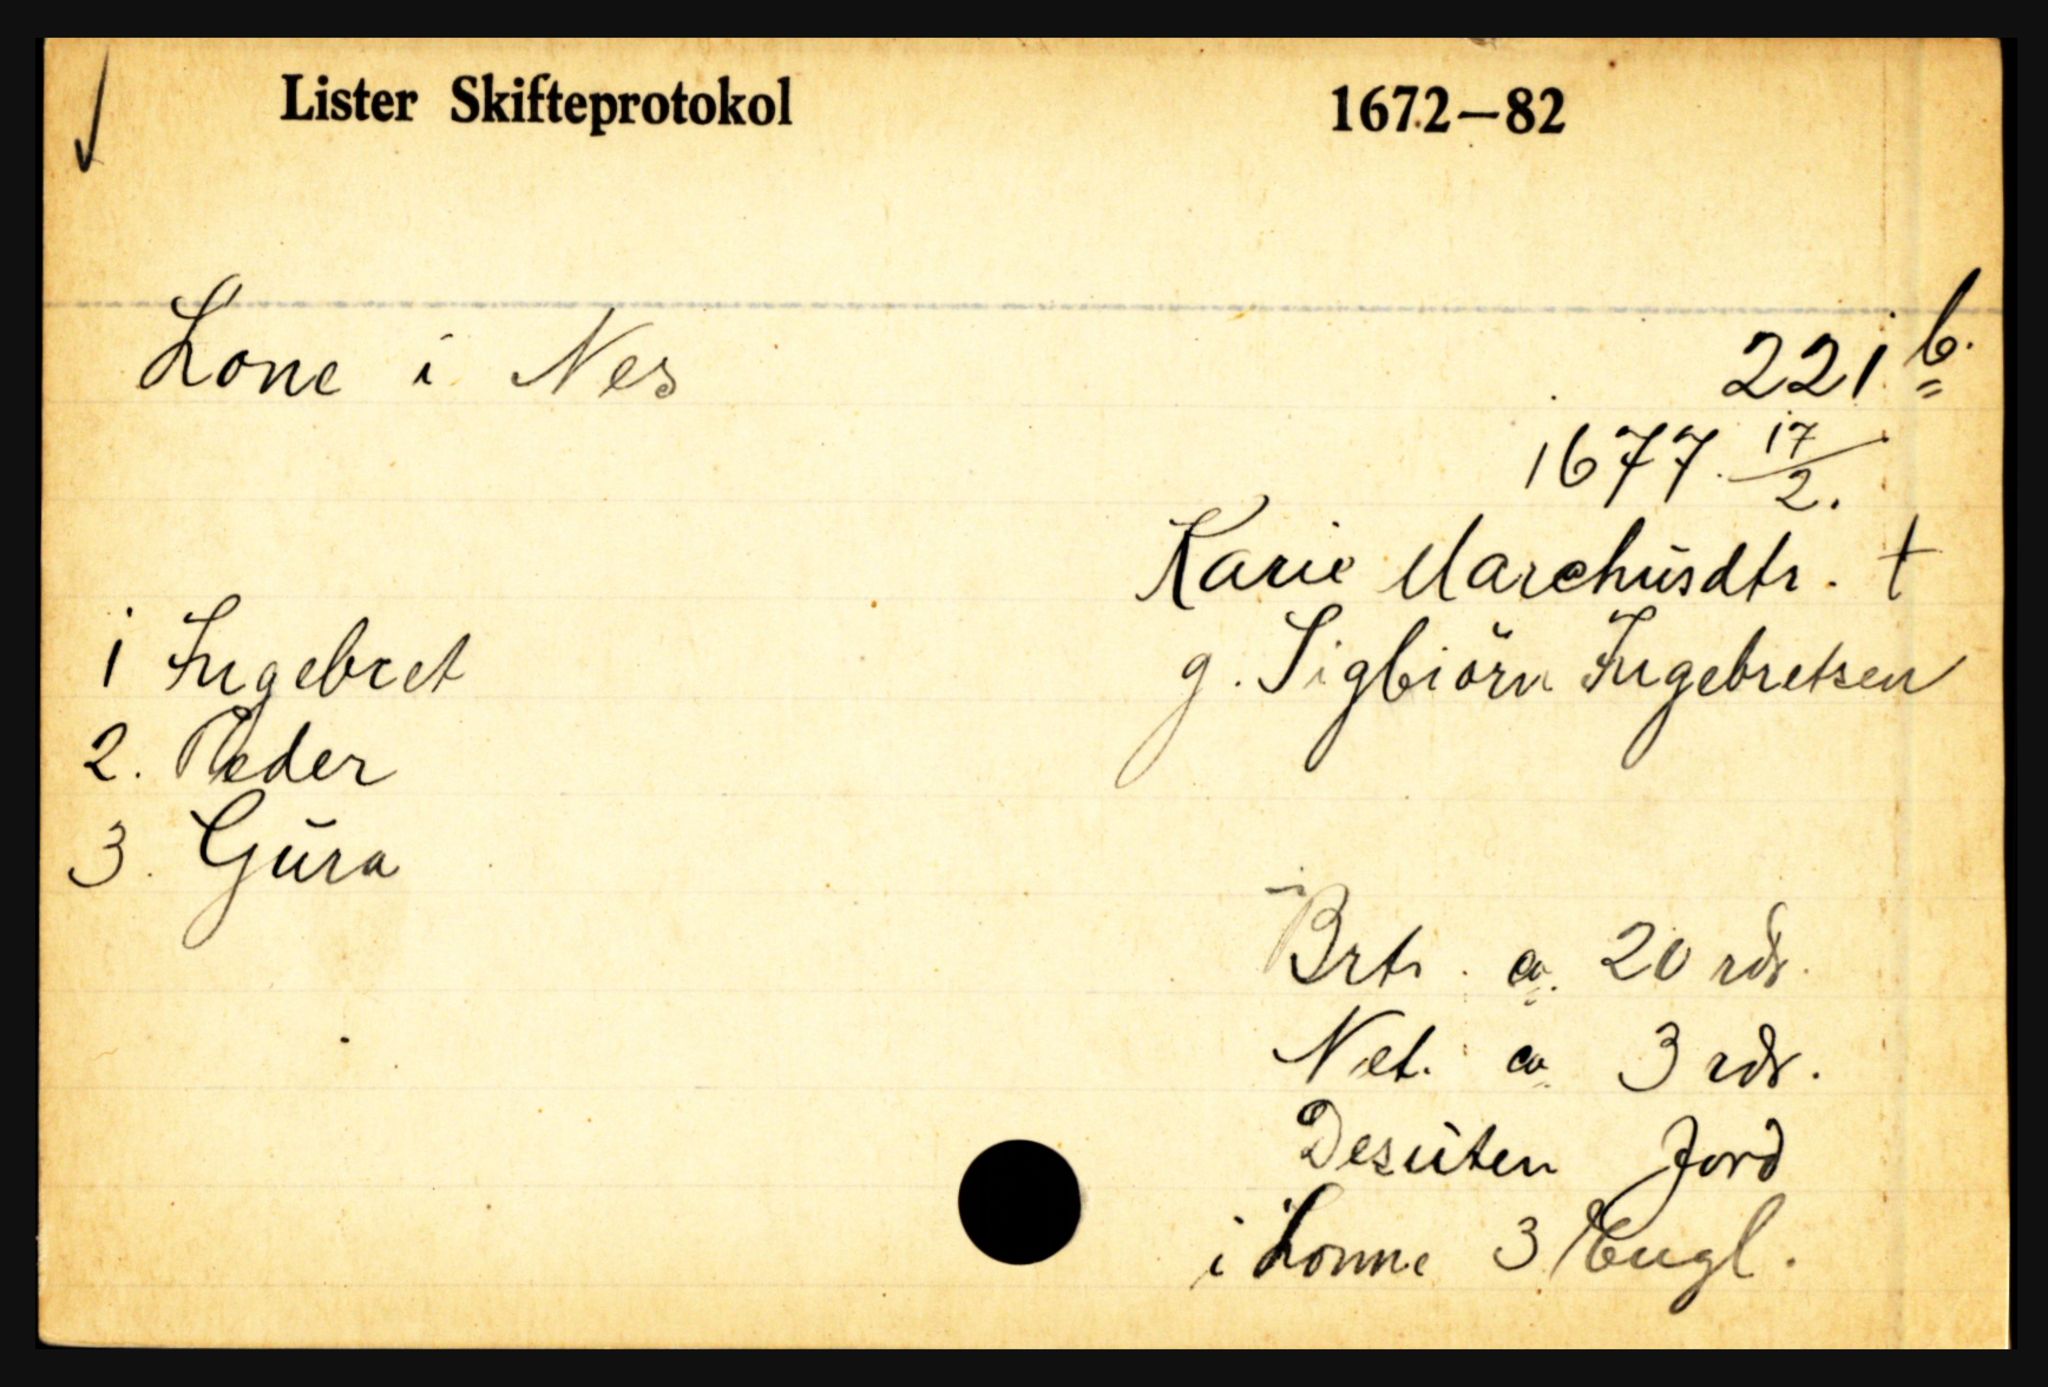 Lister Skifteprotokol 1672-82
Lone i Nes 221 b.
1677 17/2.
Karie Marchusdtr. †
1 Ingebret g. Sigbiörn Ingebretsen
2. Peder
3. Gura
Brt. ca. 20 rdr.
Net. ca. 3 rdr.
Desuten Jord
i Lonne 3 Engl.